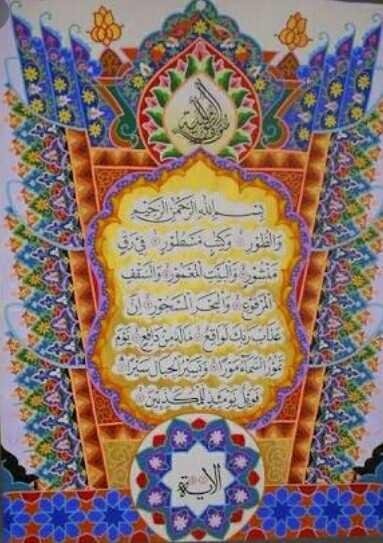 بسم الله الرحمن الرحيم
والطور وكتب مسطور في رق
منشور والبيت المعمور والسقف
المرفوع والبحر المسجور ان
عذاب ربك لواقع ماله من دافع يوم
تمور السماء مورا وتسير الجبال سيرا
فويل يومئذ للمكذبين
الاية